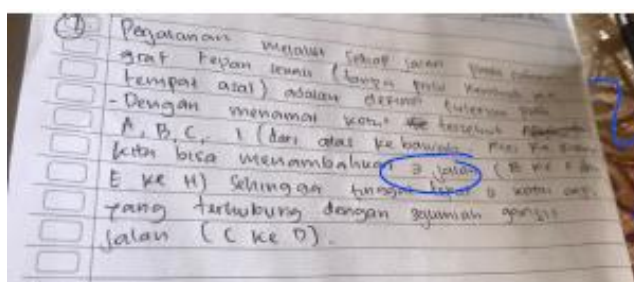 7 Perjalanan melalui setiap jalan pada
graf tepat (tanpa perlu kembali
tempat asal) adalah definisi
- Dengan menamai kota tersebut
A, B, C, I (dari atas ke bawah, ke
kita bisa menambahkan 2 jalan (B ke
E ke H) Sehingga tinggal tepat 2 kota
yang terhubung dengan sejumlah ganjil
jalan (C ke D).